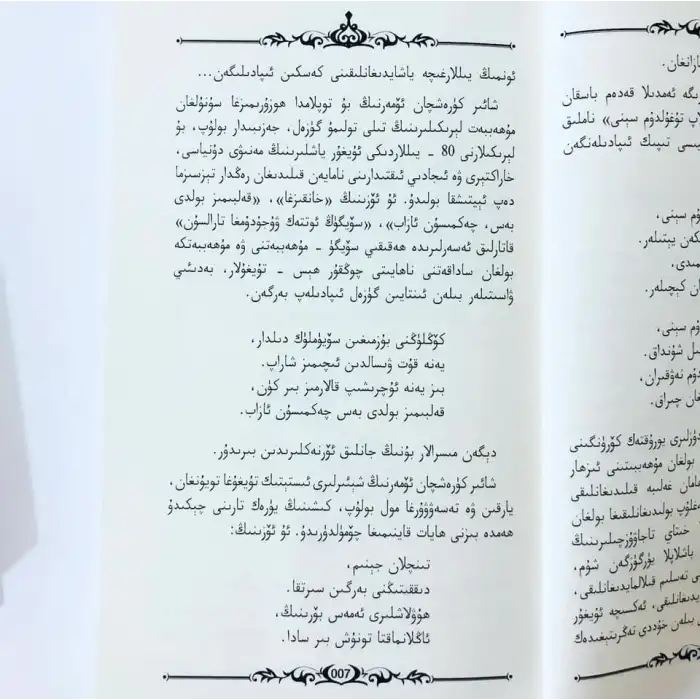 ئونىڭ يىللارغىچە ياشايدىغانلىقىنى كەسكىن ئىپادىلىگەن...
شائىر كۈرەشچان ئۆمەرنىڭ بۇ توپلامدا ھوزۇرىمىزغا سۇنۇلغان
مۇھەببەت لىرىكىلىرىنىڭ تىلى تولىمۇ گۈزەل، جەزىبىدار بولۇپ، بۇ
لىرىكىلارنى 80 - يىللاردىكى ئۇيغۇر ياشلىرىنىڭ مەنىۋى دۇنياسى،
خاراكتېرى ۋە ئىجادىي ئىقتىدارىنى نامايەن قىلىدىغان رەڭدار تىزىسزىما
دەپ ئېيتىشقا بولىدۇ. ئۇ ئۆزىنىڭ «خانقىزغا»، «قەلبىمىز بولدى
بەس، چەكمىسۇن ئازاب»، «سۆيگۈڭ ئوتتەك ۋۇجۇدۇمغا تارالسۇن»
قاتارلىق ئەسەرلىرىدە ھەقىقىي سۆيگۈ - مۇھەببەتنى ۋە مۇھەببەتكە
بولغان ساداقەتنى ناھايىتى چوڭقۇر ھېس - تۇيغۇلار، بەدىئىي
ۋاستىلەر بىلەن ئىنتايىن گۈزەل ئىپادىلەپ بەرگەن.
كۆڭلۈڭنى بۇزمىغىن سۆيۈملۈك دىلدار،
يەنە قۇت ۋىسالدىن ئىچىمىز شاراپ.
بىز يەنە ئۇچرىشىپ قالارمىز بىر كۈن،
قەلبىمىز بولدى بەس چەكمىسۇن ئازاب.
دېگەن مىسرالار بۇنىڭ جانلىق ئۆرنەكلىرىدىن بىرىدۇر.
شائىر كۈرەشچان ئۆمەرنىڭ شېئىرلىرى ئىستېتىك تۇيغۇغا تويۇنغان،
يارقىن ۋە تەسەۋۋۇرغا مول بولۇپ، كىشىنىڭ يۈرەك تارىنى چېكىدۇ
ھەمدە بىزنى ھايات قاينىمىغا چۆمۈلدۈرىدۇ. ئۇ ئۆزىنىڭ:
تىنچلان جېنىم،
دىققىتىڭنى بەرگىن سىرتقا.
ھۇۋلاشلىرى ئەمەس بۆرىنىڭ،
ئاڭلانماقتا تونۇش بىر سادا.
007
ازانغان.
ىگە ئەمدىلا قەدەم باسقان
لاپ تۇغۇلدۇم سېنى» ناملىق
ىيسى تىپىك ئىپادىلەنگەن
ۇم سېنى،
ىكەن يېتىلەر.
ىمىدى،
ان كېچىلەر.
ۇم سېنى،
ىل شۇنداق.
دۇم نەۋقىران،
غان چىراق.
ۆزلىرى يورۇقتەك كۆرۈنگىنى
بولغان مۇھەببىتىنى ئىزھار
امان غەلىبە قىلىدىغانلىقى
ەغلۇپ بولىدىغانلىقىغا بولغان
خىتاي تاجاۋۇزچىلىرىنىڭ
باشلاپلا يۈرگۈزگەن شۇم،
ى تەسلىم قىلالمايدىغانلىقى،
يدىغانلىقى، ئەكسىچە ئۇيغۇر
ى بىلەن خۇددى تەڭرىتېغىدەك